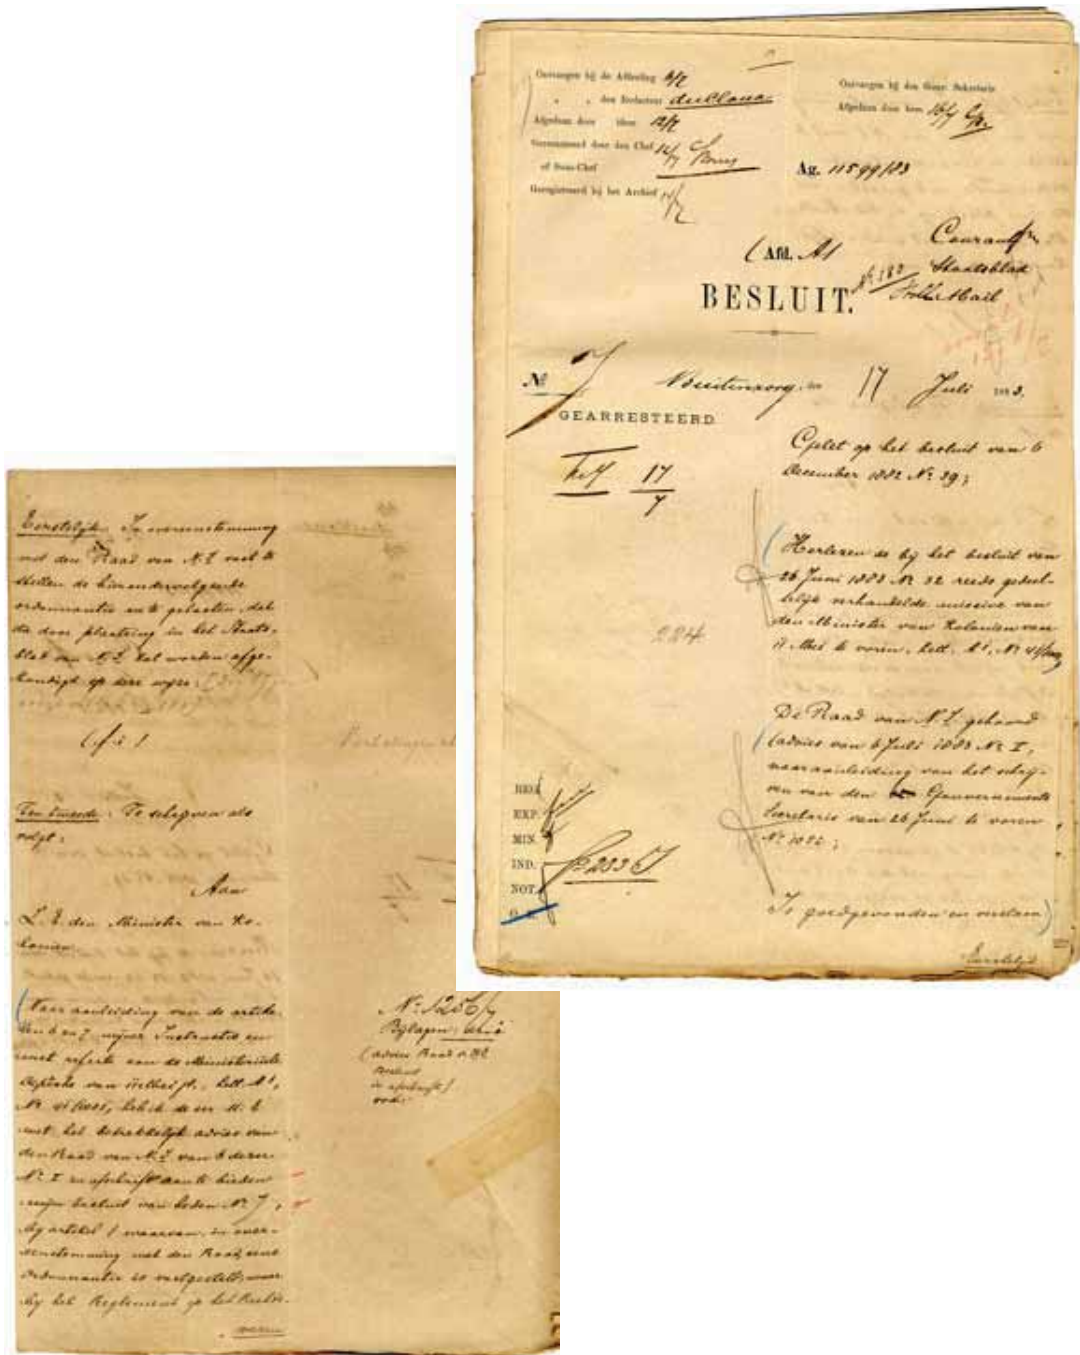 Ontvangen bij de Afdeeling 6/7
" " den Redacteur
Afgedaan door idem 12/7
Geresumeerd door den Chef 12/7
of Sous-Chef
Geregistreerd bij het Archief
Ontvangen bij den Gouv. Sekretaris
Afgedaan door hem 16/7
Ag. 11599/83
(Afd. A1
Courant
Staatsblad
No 183
Mail
BESLUIT.
No 7 Buitenzorg, den 17 Juli 1883.
GEARRESTEERD
17
7
Gelet op het besluit van 6
December 1882 No 39;
Herlezen de bij het besluit van
26 Juni 1883 No 32 reeds gedeel-
telijk verhandelde missive van
den Minister van Kolonien van
11 Mei te voren, Lett. A1, No
224
De Raad van N. I. gehoord
(advies van 6 Juli 1883 No I,
naar aanleiding van het schrij-
ven van den Gouvernements
Secretaris van 26 Juni te voren
No 1082;
REG.
EXP.
MIN.
IND.
NOT.
Is goedgevonden en verstaan
Eerstelijk
Eerstelijk: In overeenstemming
met den Raad van N. I. vast te
stellen de hierondervolgende
ordonnantie en te gelasten, dat
die door plaatsing in het Staats-
blad van N. I. zal worden afge-
kondigd op deze wijze:
Ten tweede: Te schrijven als
volgt:
Aan
Z. E. den Minister van Ko-
lonien
Naar aanleiding van de artike-
len 6 en 7 mijner Instructie en
met referte aan de Ministerieele
depêche van Lett. A1,
No heb ik de eer U. E.
met het betrekkelijk advies van
den Raad van N. I. van 6 dezer
No I in afschrift aan te bieden
mijn besluit van heden No 7,
bij artikel 1 waarvan, in over-
eenstemming met den Raad, eene
ordonnantie is vastgesteld, waar
bij het Reglement op het Rechts-
wezen
No 1256/7
Bijlagen:
(advies Raad v. N. I.
Besluit
in afschrift)